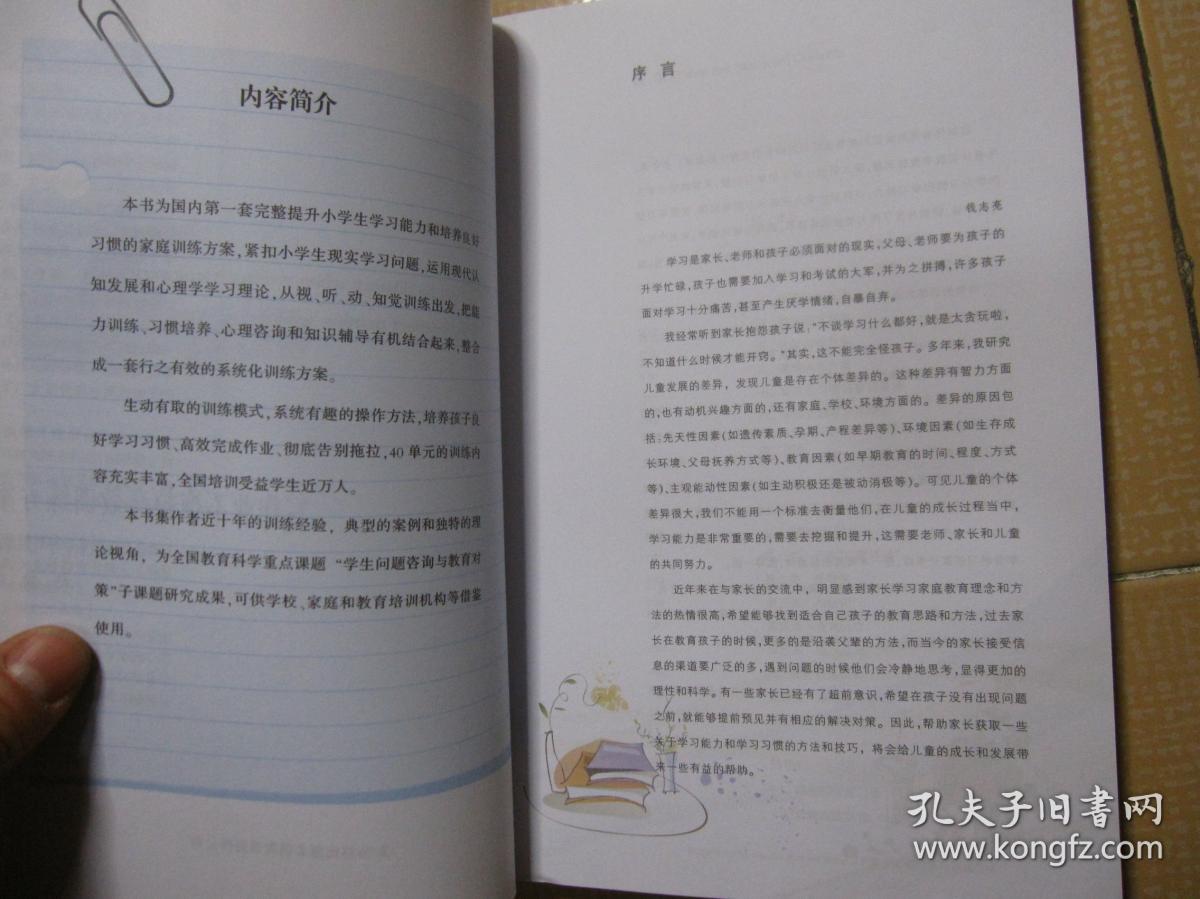 内容简介
本书为国内第一套完整提升小学生学习能力和培养良好
习惯的家庭训练方案，紧扣小学生现实学习问题，运用现代认
知发展和心理学学习理论，从视、听、动、知觉训练出发，把能
力训练、习惯培养、心理咨询和知识辅导有机结合起来，整合
成一套行之有效的系统化训练方案。
生动有取的训练模式，系统有趣的操作方法，培养孩子良
好学习习惯、高效完成作业、彻底告别拖拉，40 单元的训练内
容充实丰富，全国培训受益学生近万人。
本书集作者近十年的训练经验，典型的案例和独特的理
论视角，为全国教育科学重点课题“学生问题咨询与教育对
策”子课题研究成果，可供学校、家庭和教育培训机构等借鉴
使用。
序 言
钱志亮
学习是家长、老师和孩子必须面对的现实，父母、老师要为孩子的
升学忙碌，孩子也需要加入学习和考试的大军，并为之拼搏，许多孩子
面对学习十分痛苦，甚至产生厌学情绪，自暴自弃。
我经常听到家长抱怨孩子说：“不谈学习什么都好，就是太贪玩啦，
不知道什么时候才能开窍。”其实，这不能完全怪孩子。多年来，我研究
儿童发展的差异，发现儿童是存在个体差异的。这种差异有智力方面
的，也有动机兴趣方面的，还有家庭、学校、环境方面的。差异的原因包
括：先天性因素（如遗传素质、孕期、产程差异等）、环境因素（如生存成
长环境、父母抚养方式等）、教育因素（如早期教育的时间、程度、方式
等）、主观能动性因素（如主动积极还是被动消极等）。可见儿童的个体
差异很大，我们不能用一个标准去衡量他们，在儿童的成长过程当中，
学习能力是非常重要的，需要去挖掘和提升，这需要老师、家长和儿童
的共同努力。
近年来在与家长的交流中，明显感到家长学习家庭教育理念和方
法的热情很高，希望能够找到适合自己孩子的教育思路和方法，过去家
长在教育孩子的时候，更多的是沿袭父辈的方法，而当今的家长接受信
息的渠道要广泛的多，遇到问题的时候他们会冷静地思考，显得更加的
理性和科学。有一些家长已经有了超前意识，希望在孩子没有出现问题
之前，就能够提前预见并有相应的解决对策。因此，帮助家长获取一些
关于学习能力和学习习惯的方法和技巧，将会给儿童的成长和发展带
来一些有益的帮助。
孔夫子旧书网
www.kongfz.com